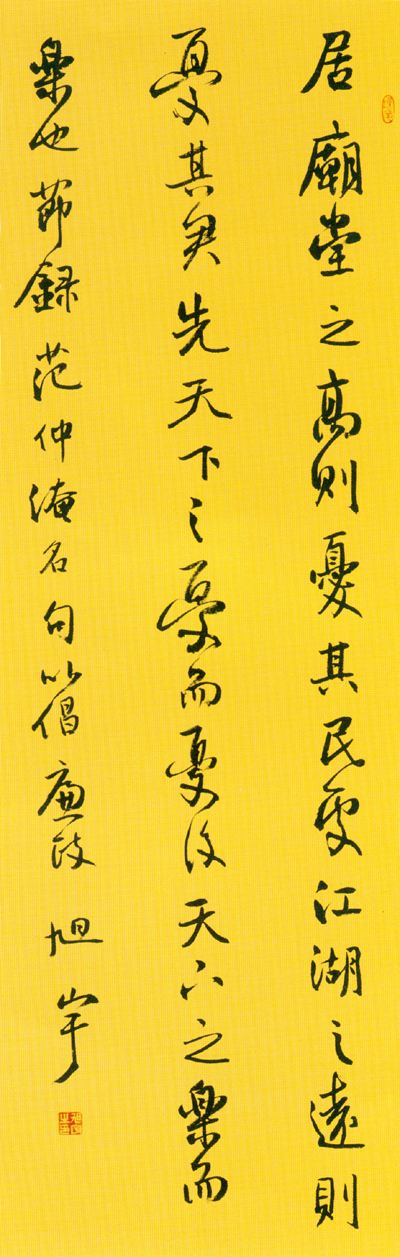 居廟堂之高則憂其民處江湖之遠則
憂其君先天下之憂而憂後天下之樂而
樂也節録范仲淹名句以倡廉政旭宇